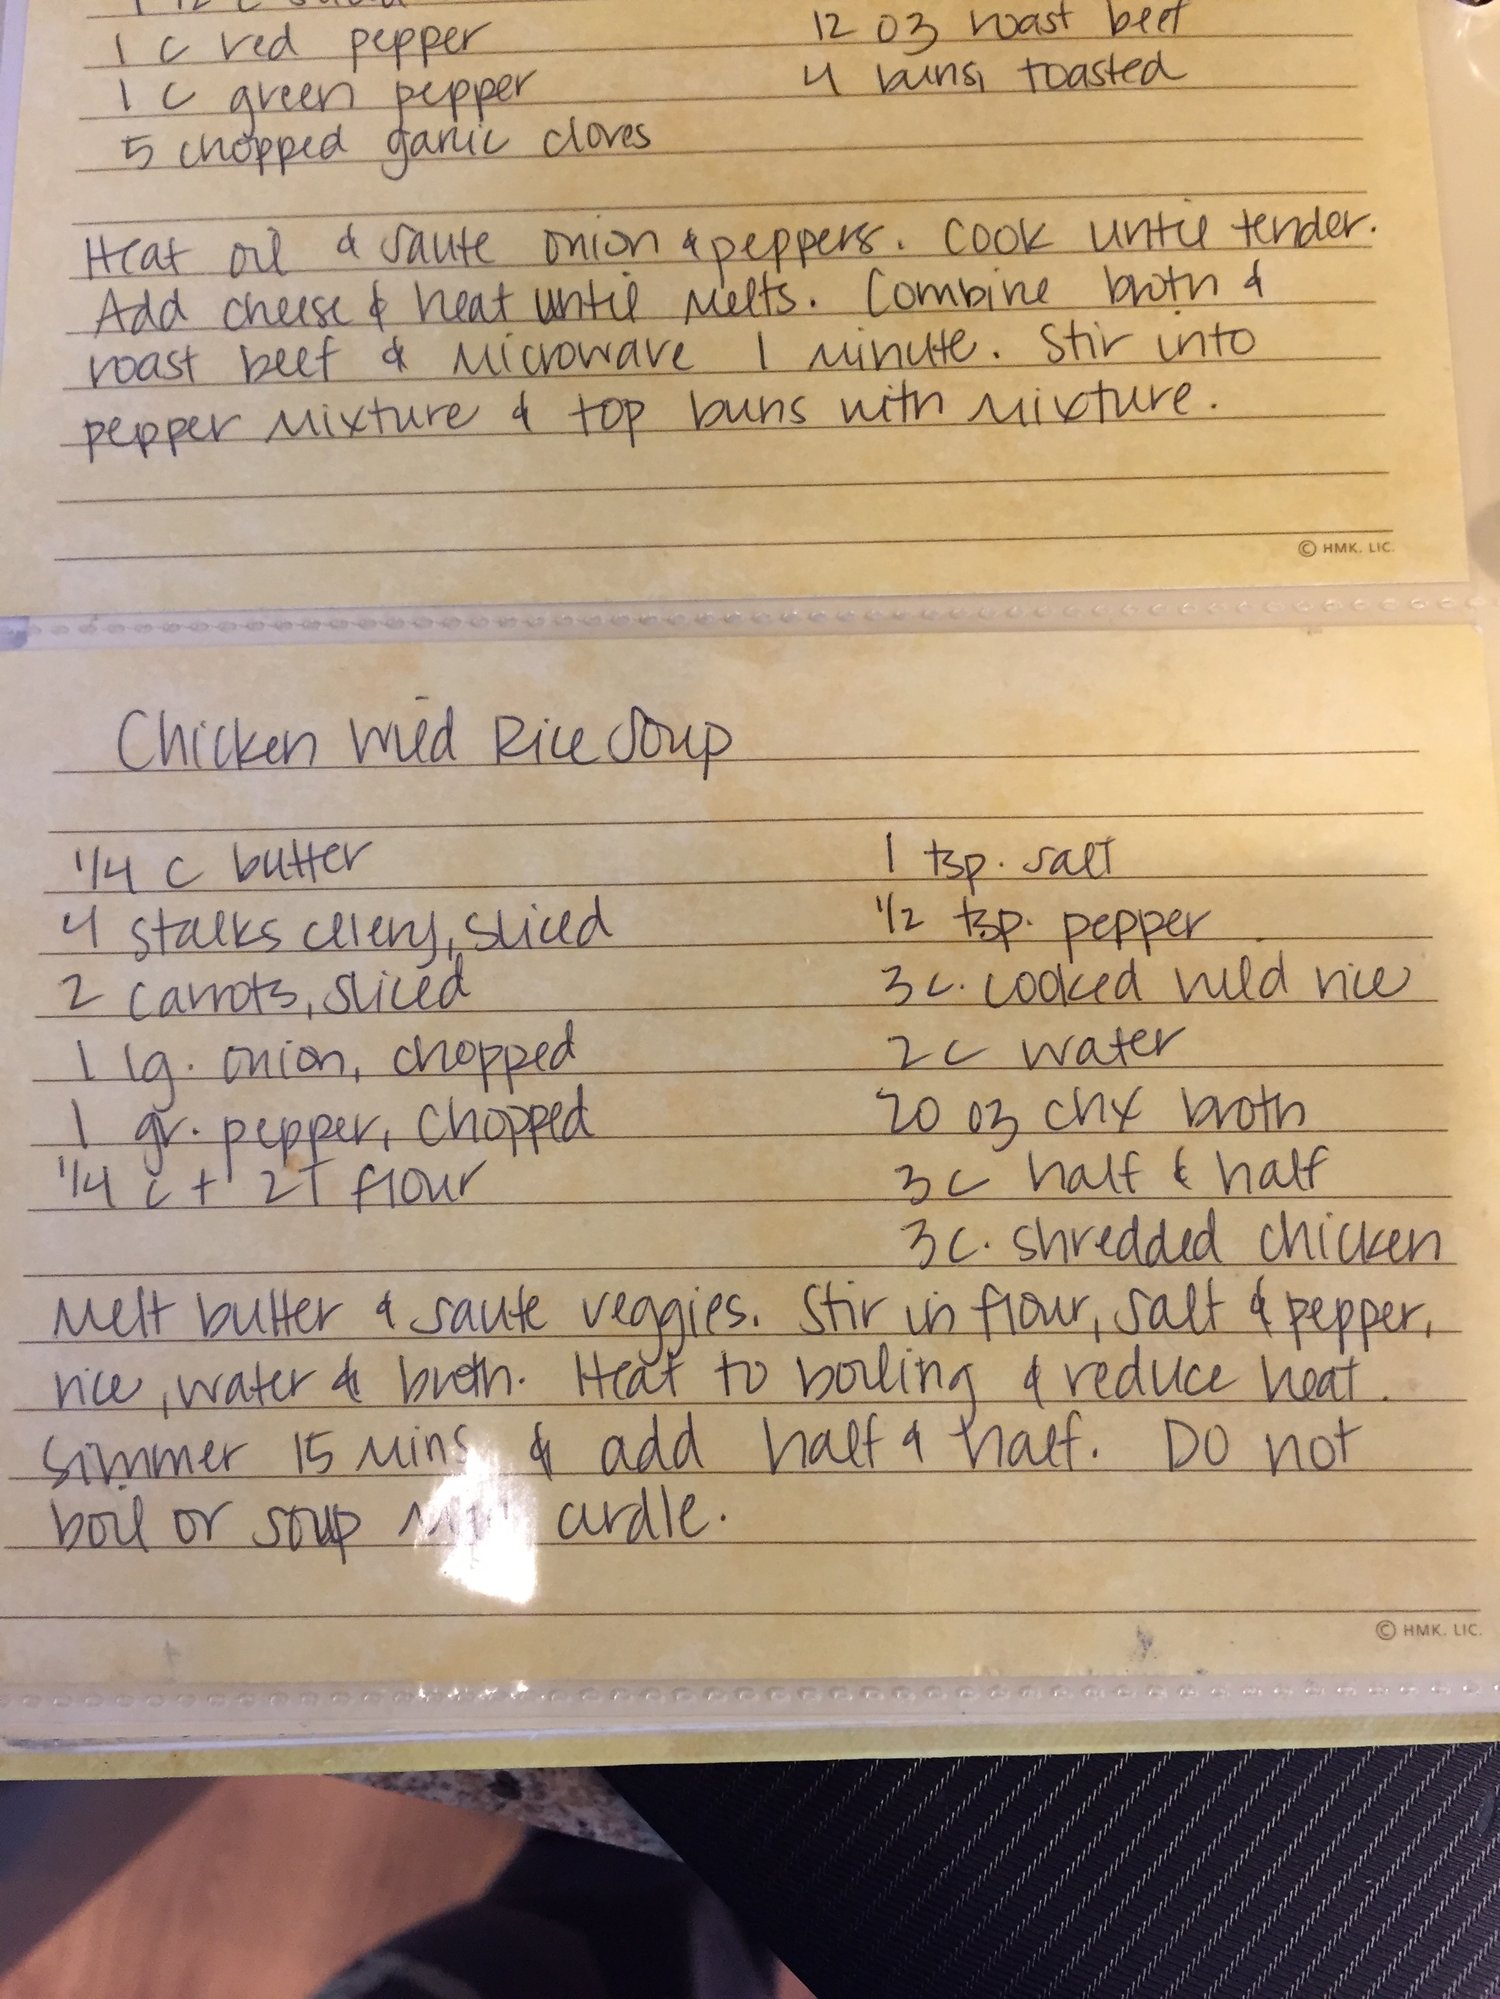 1 c red pepper
12 oz roast beef
1 c green pepper
4 buns, toasted
5 chopped garlic cloves
Heat oil & saute onion & peppers. Cook until tender.
Add cheese & heat until melts. Combine broth &
roast beef & microwave 1 minute. Stir into
pepper mixture & top buns with mixture.
© HMK. LIC.
Chicken Wild Rice Soup
1/4 c butter
4 stalks celery, sliced
2 carrots, sliced
1 lg. onion, chopped
1 gr. pepper, chopped
1/4 c + 2T flour
1 tsp. salt
1/2 tsp. pepper
3 c. cooked wild rice
2 c water
20 oz chx broth
3 c half & half
3 c. shredded chicken
Melt butter & saute veggies. Stir in flour, salt & pepper,
rice, water & broth. Heat to boiling & reduce heat.
Simmer 15 mins & add half & half. Do not
boil or soup curdle.
© HMK. LIC.